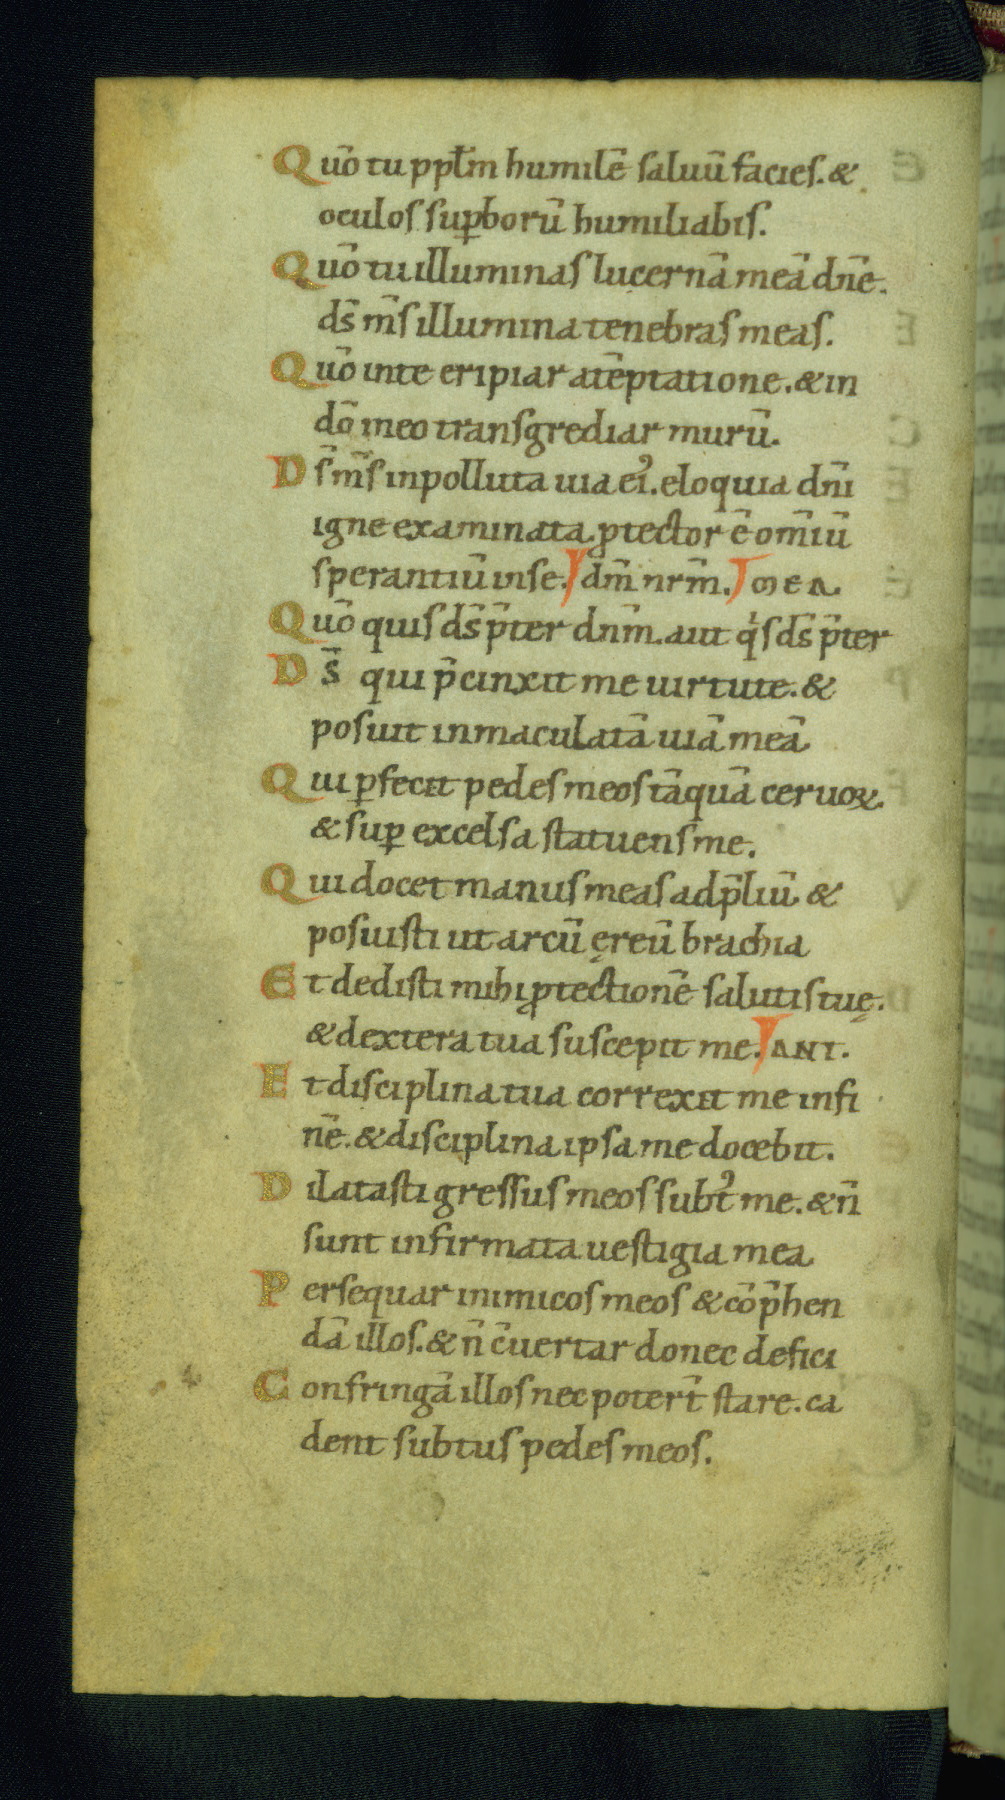 Quō tu ppłm humilē saluū facies. &
oculos suꝑborū humiliabis.
Quō tu illuminas lucernā meā dn̄e.
ds̄ m̄s illumina tenebras meas.
Quō in te eripiar a tēptatione. & in
dō meo transgrediar murū.
Ds̄ m̄s inpolluta uia ei᾽. eloquia dn̄i
igne examinata ꝓtector ē om̄iū
sperantiū in se. dm̄ nrm̄. MEA.
Quō quis ds̄ p̄ter dnm̄. aut qͥs ds̄ p̄ter
Ds̄ qui p̄cinxit me uirtute. &
posuit inmaculatā uiā meā
Qui ꝑfecit pedes meos tāquā ceruoꝝ.
& suꝑ excelsa statuens me.
Qui docet manus meas ad p̄liū. &
posuisti ut arcū ęreū brachia
Et dedisti mihi ꝓtectionē salutis tuę.
& dextera tua suscepit me. ANT.
Et disciplina tua correxit me in fi
nē. & disciplina ipsa me docebit.
Dilatasti gressus meos subt᾽ me. & n̄
sunt infirmata uestigia mea
Persequar inimicos meos & cōp̄hen
dā illos. & n̄ c̄uertar donec defici
Confringā illos nec potert̄ stare. ca
dent subtus pedes meos.